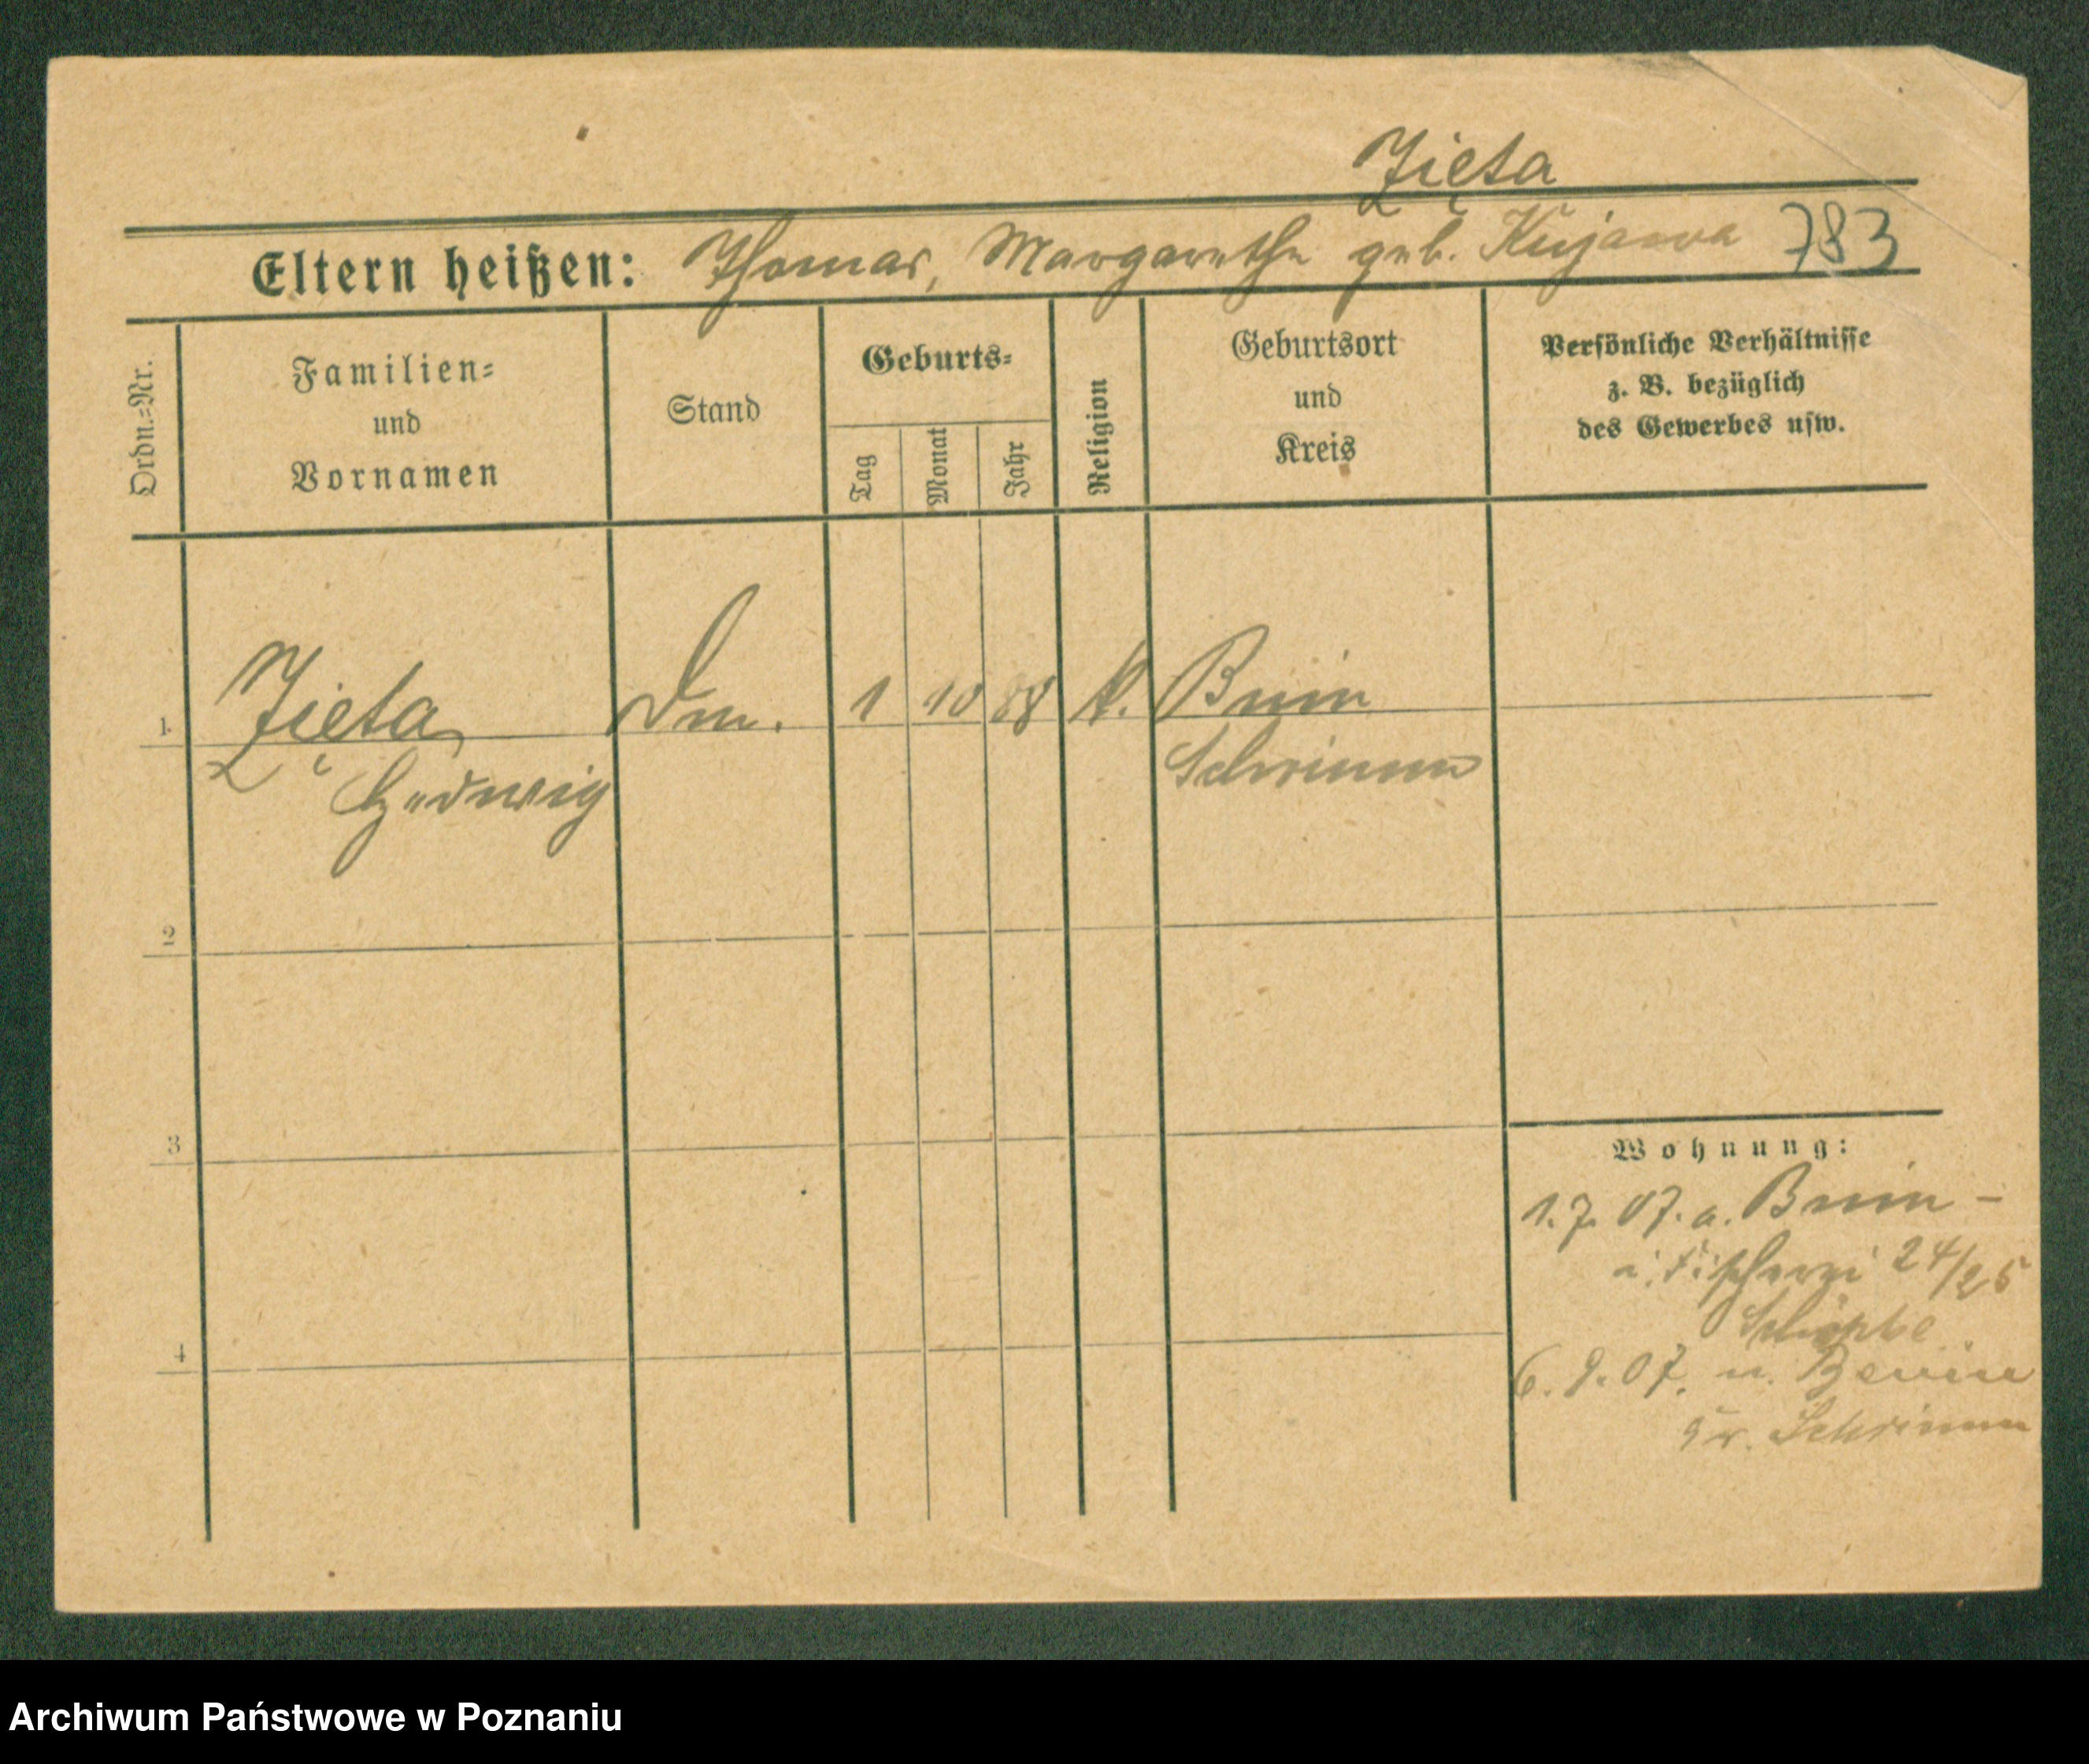 Zięta
Eltern heißen: Thomas, Margarethe geb. Kujawa 783
Ordn.=Nr.
Familien=
und
Vornamen
Stand
Geburts=
Tag
Monat
Jahr
Religion
Geburtsort
und
Kreis
Persönliche Verhältnisse
z. B. bezüglich
des Gewerbes usw.
1 Zięta, Dm. 1 10 88 k. Bnin
Hedwig Schrimm
2
3
Wohnung:
1.7.07. a. Bnin –
i. Fischerei 24/25
4
6.9.07. n. Bnin
Kr. Schrimm
Archiwum Państwowe w Poznaniu